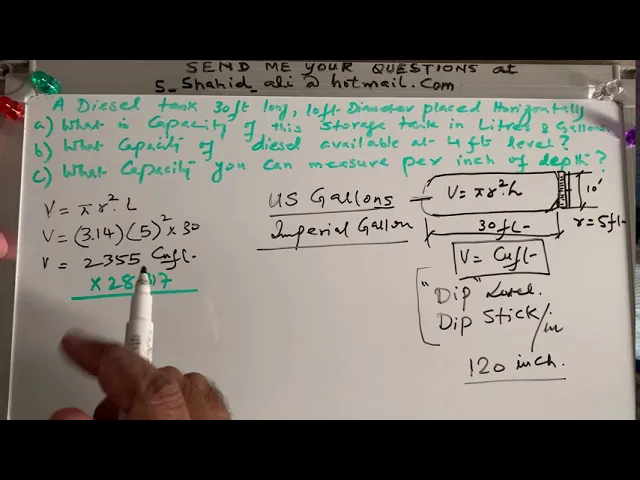 SEND ME YOUR QUESTIONS at
S_Shahid_ali@hotmail.com
A Diesel tank 30ft long, 10ft Diameter placed Horizontally
a) What is Capacity of this Storage tank in Litres & Gallons
b) What Capacity of diesel available at 4ft level?
c) What Capacity you can measure per inch of depth?
V = πr². L
V = (3.14)(5)² x 30
V = 2355 Cuft
x 28 7
US Gallons
Imperial Gallon
V = πr². L
10'
30ft
r = 5ft
V = Cuft
"Dip" Level.
Dip Stick/in
120 inch.